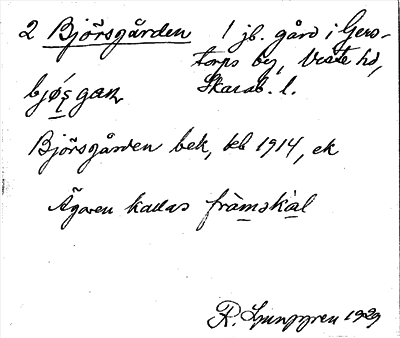 2 Björsgården 1 jb. gård i Gers-
torps by, Viste hd,
Skarab. l.
Björsgården bek, leb 1914, ek
Ägaren kallas fràmskàl
R. Ljunggren 1929